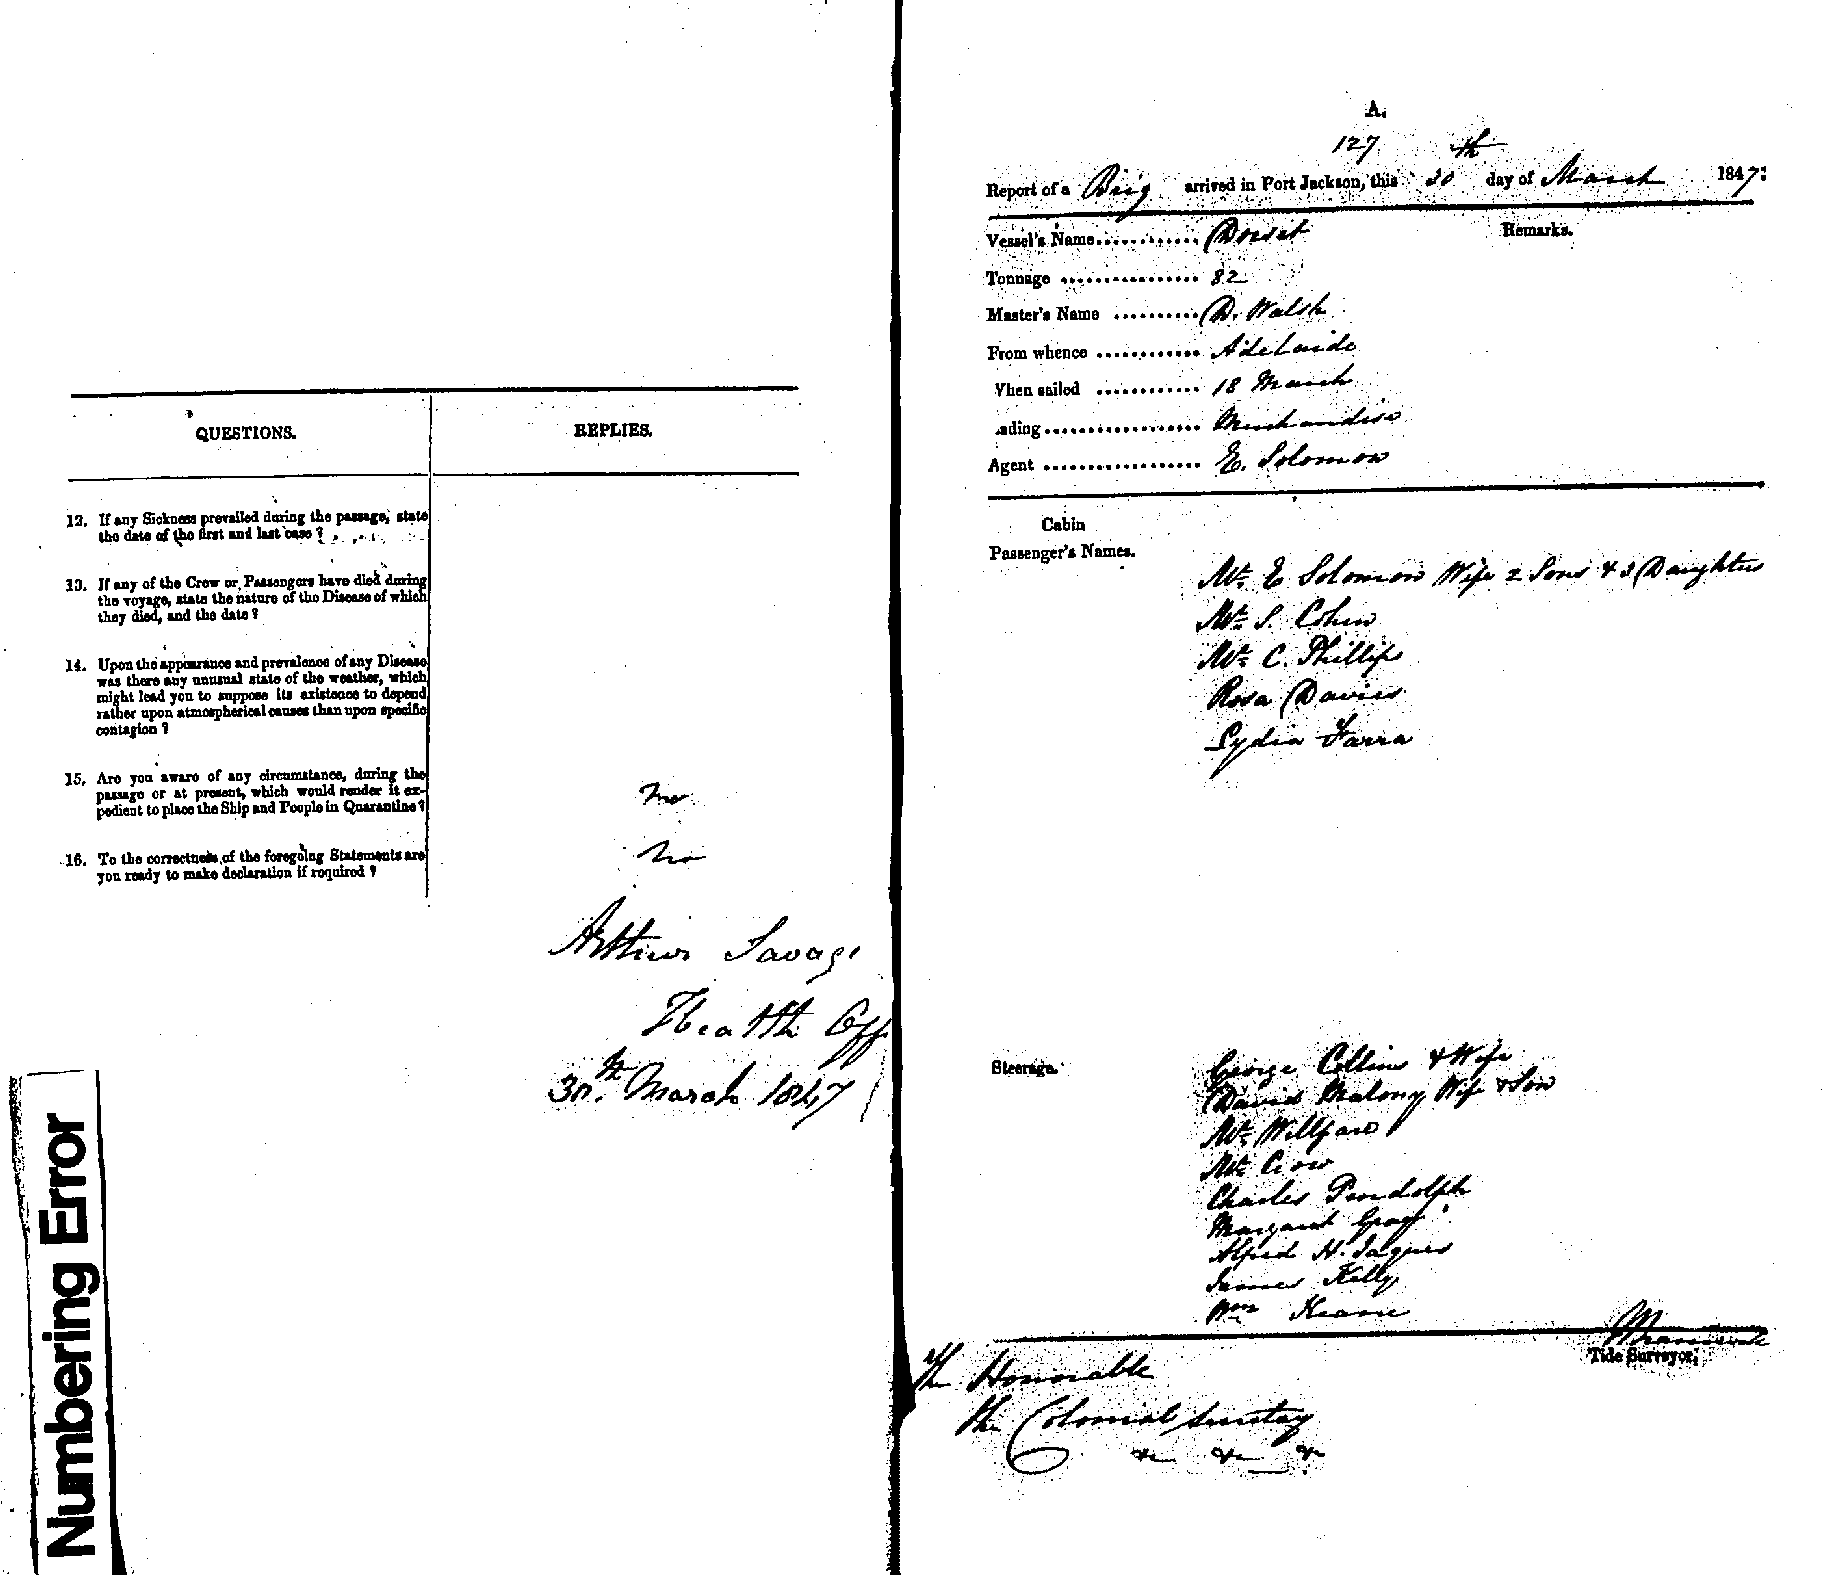 QUESTIONS. REPLIES.
12. If any Sickness prevailed during the passage, state
the date of the first and last case ?
13. If any of the Crew or Passengers have died during
the voyage, state the nature of the Disease of which
they died, and the date ?
14. Upon the appearance and prevalence of any Disease
was there any unusual state of the weather, which
might lead you to suppose its existence to depend
rather upon atmospherical causes than upon specific
contagion ?
15. Are you aware of any circumstance, during the
passage or at present, which would render it ex-
pedient to place the Ship and People in Quarantine ?
no
16. To the correctness of the foregoing Statements are
you ready to make declaration if required ?
no
Arthur Savage
Health Off
30th March 1847
Numbering Error
A.
127
Report of a Brig arrived in Port Jackson, this 30th day of March 1847:
Vessel's Name............ Dorset Remarks.
Tonnage ................ 82
Master's Name .......... D. Walsh
From whence ............ Adelaide
When sailed ............ 18 March
ading.................. Merchandise
Agent .................. E. Solomon
Cabin
Passenger's Names.
Mr. E Solomon Wife 2 Sons & 3 Daughters
Mr. S. Cohen
Mr. C. Phillips
Rosa Davies
Lydia Farra
Steerage.
George Collins & Wife
David Malony Wife & Son
Mr.
Mr. Crow
Charles
Margaret Gray
Alfred H. Jaques
James Kelly
Wm Keane
Tide Surveyor.
The Honorable
the Colonial Secretary
&c &c &c